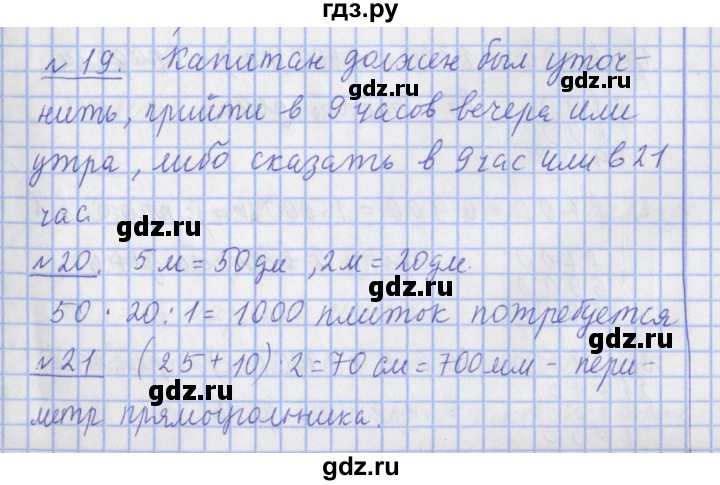 гдз.ру
№19. Капитан должен был уточ-
gdz.ru gdz.ru
нить, прийти в 9 часов вечера или
утра, либо сказать в 9 час или в 21
час.
gdz.ru gdz.ru
№20. 5 м = 50 дм, 2 м = 20 дм.
gdz.ru gdz.ru
50 · 20 : 1 = 1000 плиток потребуется
№21 (25 + 10) · 2 = 70 см = 700 мм - пери-
gdz.ru gdz.ru
метр прямоугольника.
gdz.ru